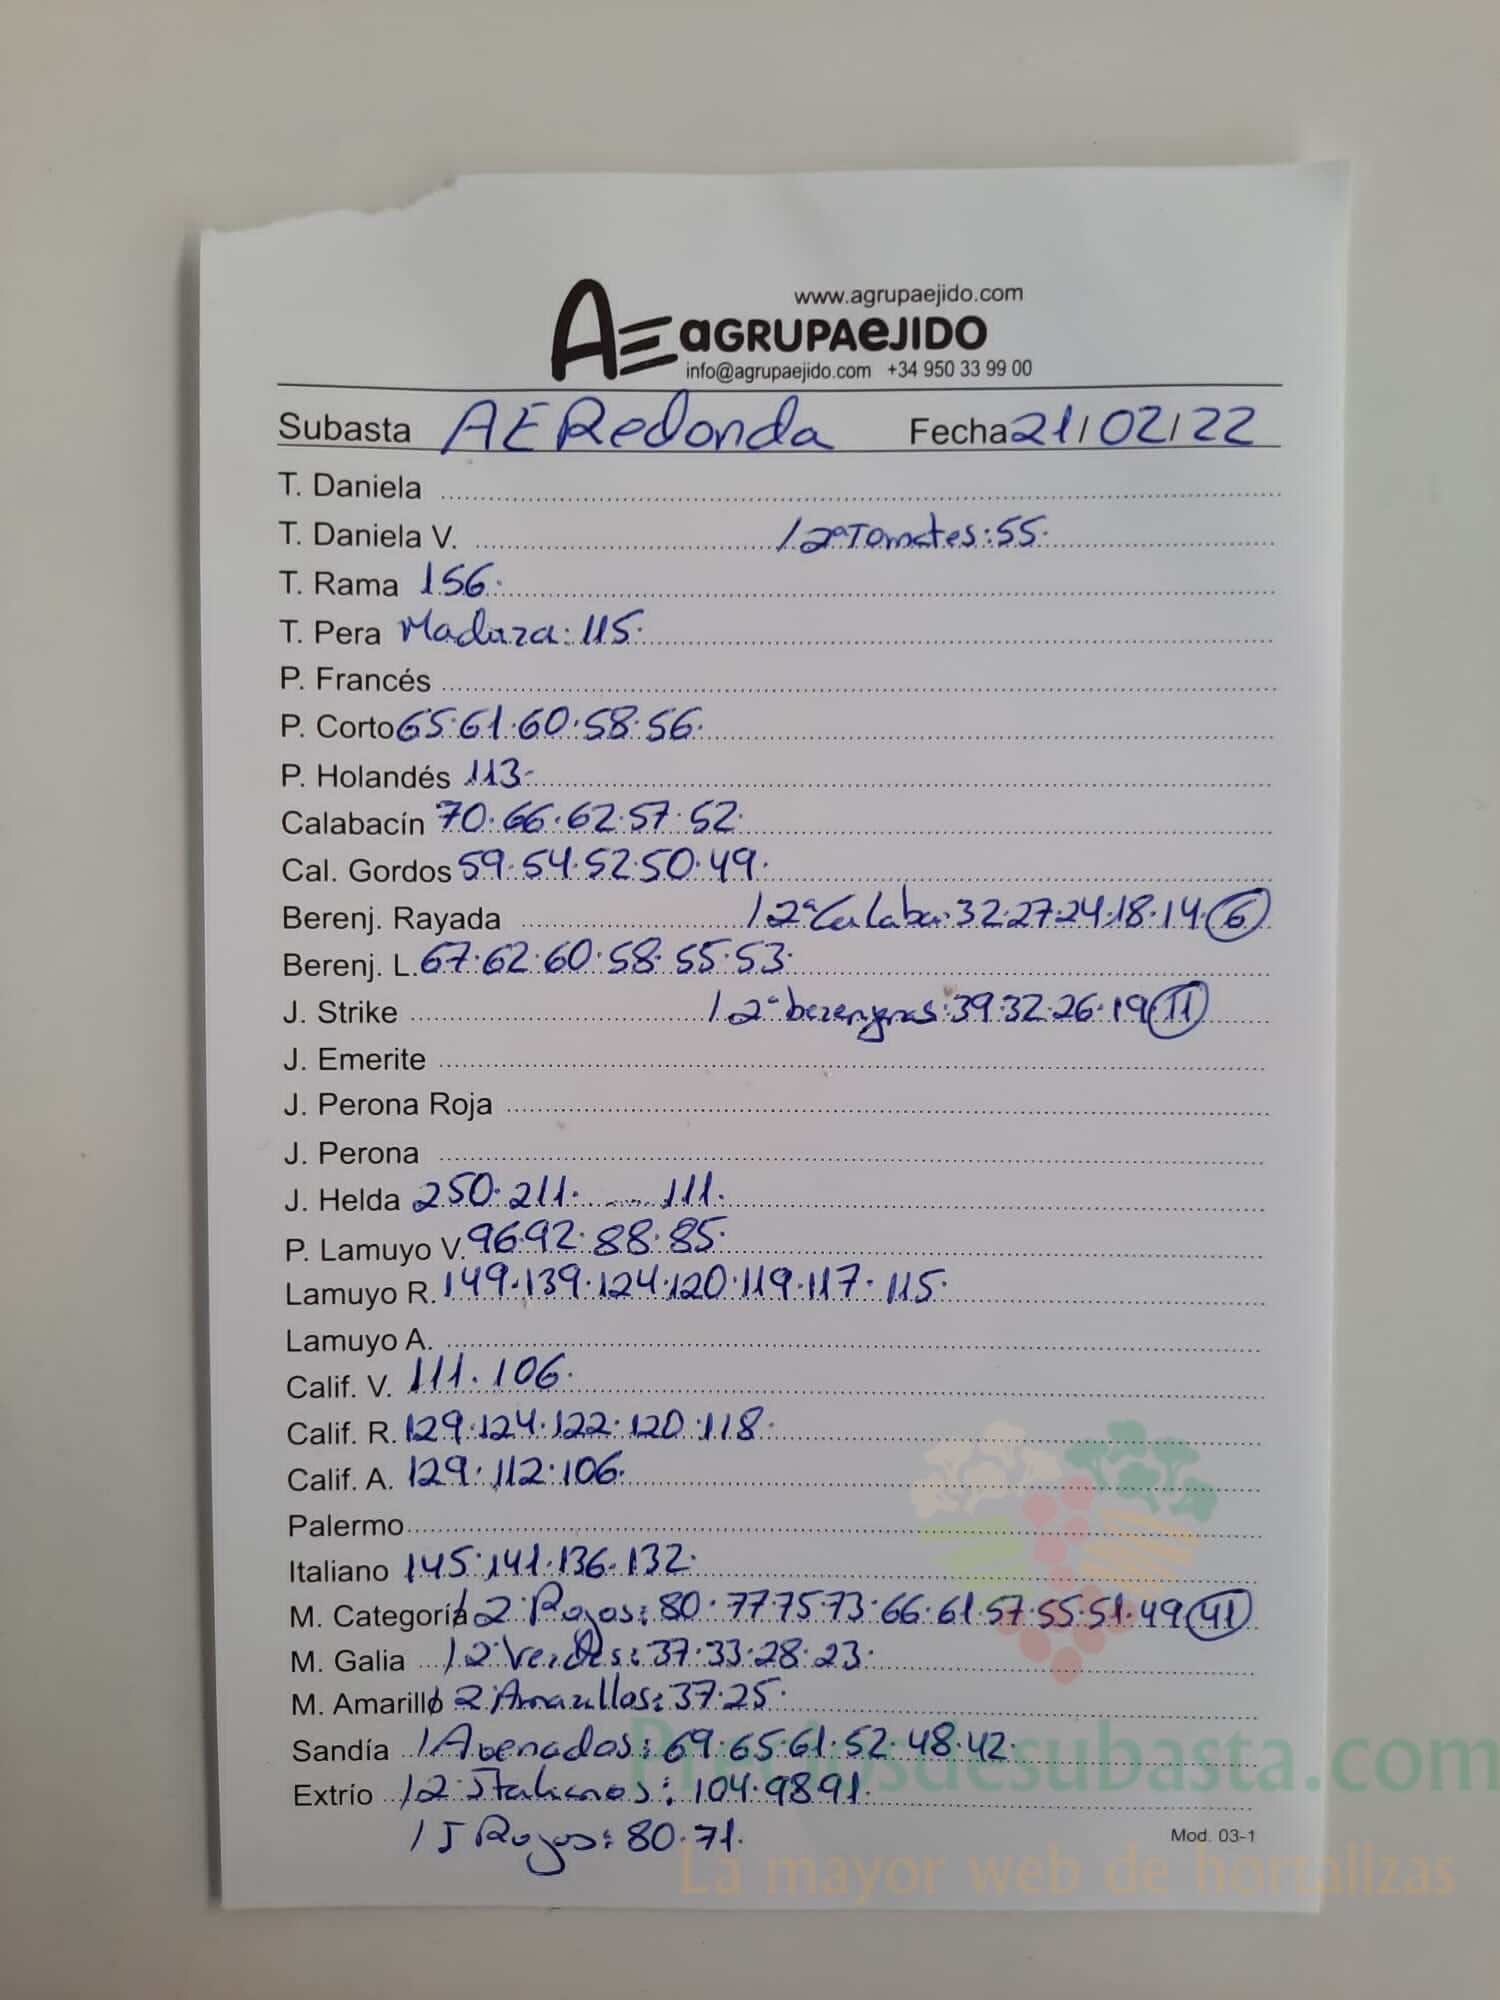 www.agrupaejido.com
AE aGRUPAeJIDO
info@agrupaejido.com +34 950 33 99 00
Subasta AE Redonda Fecha 21/02/22
T. Daniela
T. Daniela V. / 2ª Tomates: 55.
T. Rama 156.
T. Pera Madura: 115.
P. Francés
P. Corto 65.61.60.58.56.
P. Holandés 113.
Calabacín 70.66.62.57.52.
Cal. Gordos 59.54.52.50.49.
Berenj. Rayada / 2ª Calaba: 32.27.24.18.14. 6
Berenj. L. 67.62.60.58.55.53.
J. Strike / 2ª berengnas: 39.32.26.19 11
J. Emerite
J. Perona Roja
J. Perona
J. Helda 250.211. ...... 111.
P. Lamuyo V. 96.92.88.85.
Lamuyo R. 149.139.124.120.119.117.115.
Lamuyo A.
Calif. V. 111.106.
Calif. R. 129.124.122.120.118.
Calif. A. 129.112.106.
Palermo
Italiano 145.141.136.132.
M. Categoría / 2ª Rojos: 80.77.75.73.66.61.57.55.51.49 41
M. Galia / 2ª Verdes: 37.33.28.23.
M. Amarillo / 2ª Amarillos: 37.25.
Sandía / Asenados: 69.65.61.52.48.42.
Extrío / 2ª Italianos: 104.98.91.
/ J Rojos: 80.71.
Mod. 03-1
Preciosdesubasta.com
La mayor web de hortalizas